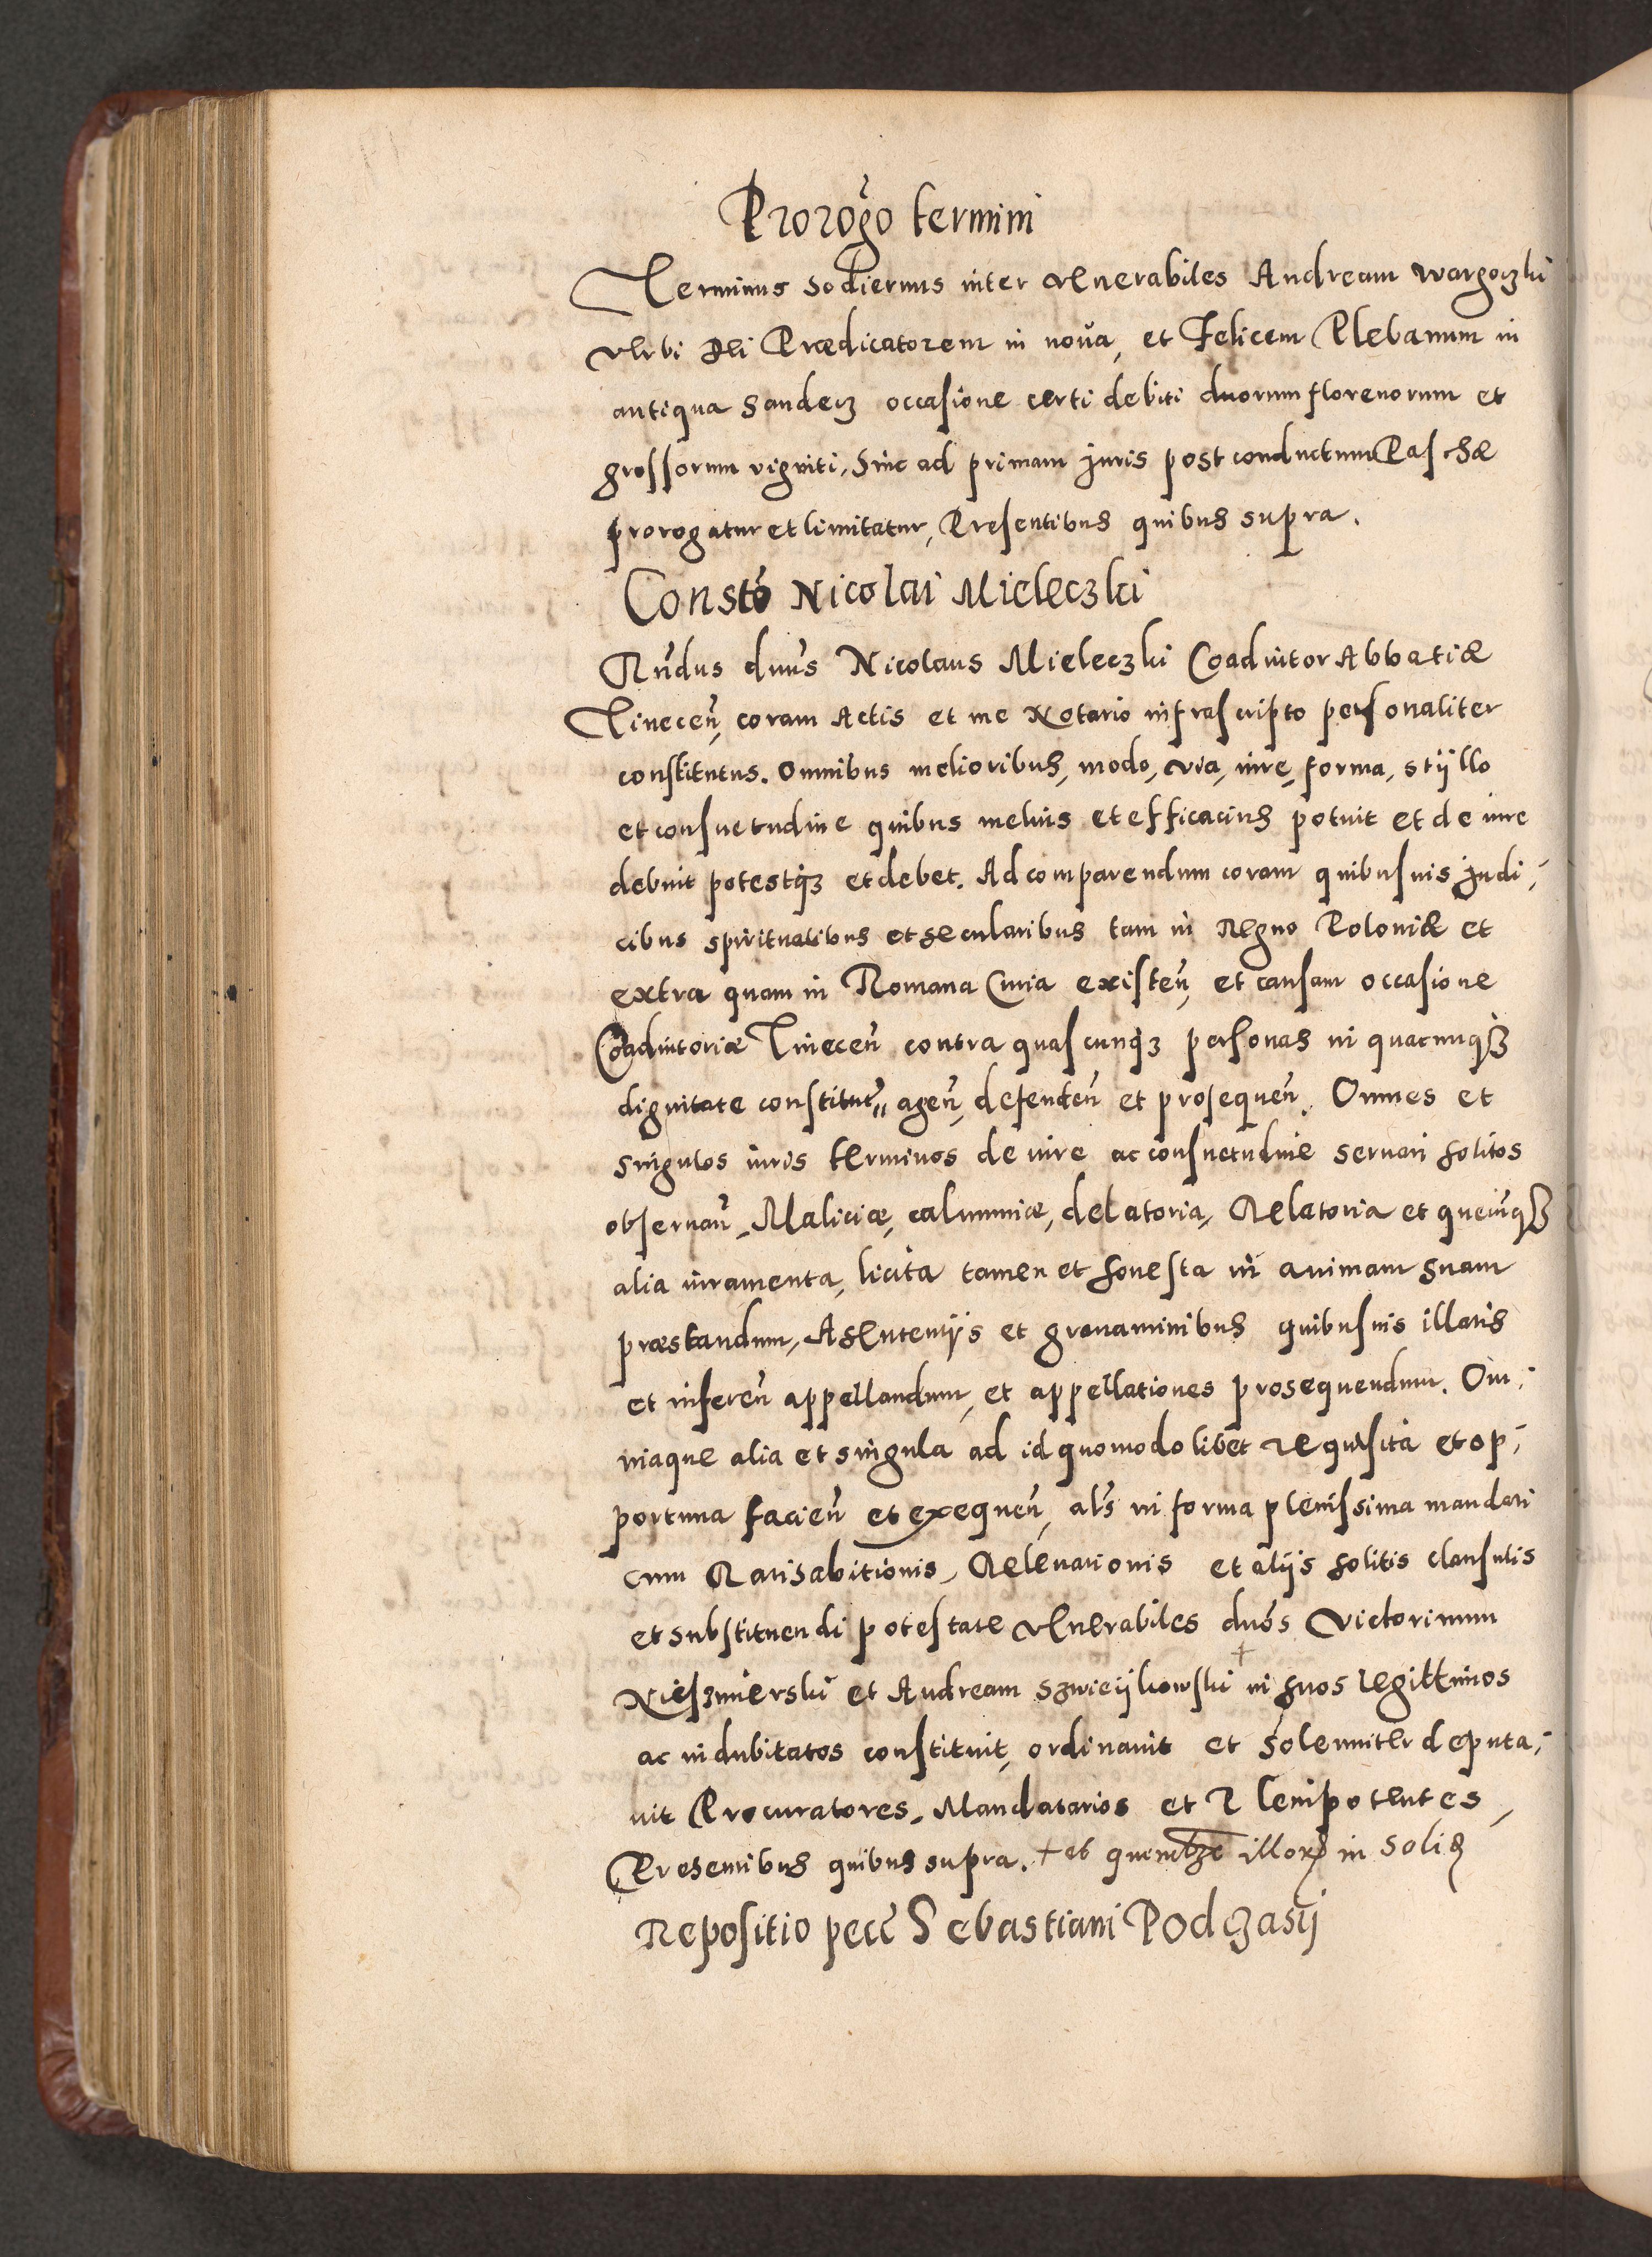 Prorogo termini
Terminus hodiernus inter venerabiles Andream Wargoczki
verbi Dei Prædicatorem in nova, et Felicem Plebanum in
antiqua Sandecz occasione certi debiti duorum florenorum et
grossorum viginti, hinc ad primam Juris post conductum Paschæ
prorogatur et limitatur, Presentibus quibus supra.
Consto Nicolai Mieleczki
Rndus dnus Nicolaus Mieleczki Coadiutor Abbatiæ
Tinecen, coram Actis et me Notario infrascripto personaliter
constitutus. Omnibus melioribus, modo, via, iure, forma, stijllo
et consuetudine quibus melius et efficacius potuit et de iure
debuit potestq3 et debet. Ad comparendum coram quibusuis Judi-
cibus spiritualibus et secularibus tam in Regno Poloniæ et
extra quam in Romana Curia existen, et causam occasione
Coadiutoriæ Tinecen contra quascunq3 personas in quacunq3
dignitate constitut,, agen, defenden et prosequen. Omnes et
singulos iuris terminos de iure ac consuetudine seruari solitos
obseruan, Maliciæ, calumniæ, delatoria, Relatoria et quecunq3
alia iuramenta, licita tamen et honesta in animam suam
præstandum, A sententijs et grauaminibus quibusuis illatis
et inferen appellandum, et appellationes prosequendum. Om-
niaque alia et singula ad id quomodolibet requisita et op-
portuna facien et exequen, als in forma plenissima mandati
cum Ratihabitionis, Releuationis et alijs solitis clausulis
et substituendi potestate venerabiles dnos Victorinum
Nieszmierski et Andream Szwieijkowski + in suos legittimos
ac indubitatos constituit, ordinauit et solenniter deputa-
uit Procuratores, Mandatarios et Plenipotentes,
Presentibus quibus supra. + et quemlibet illor in solid
Repositio pecc Sebastiani Podczasij